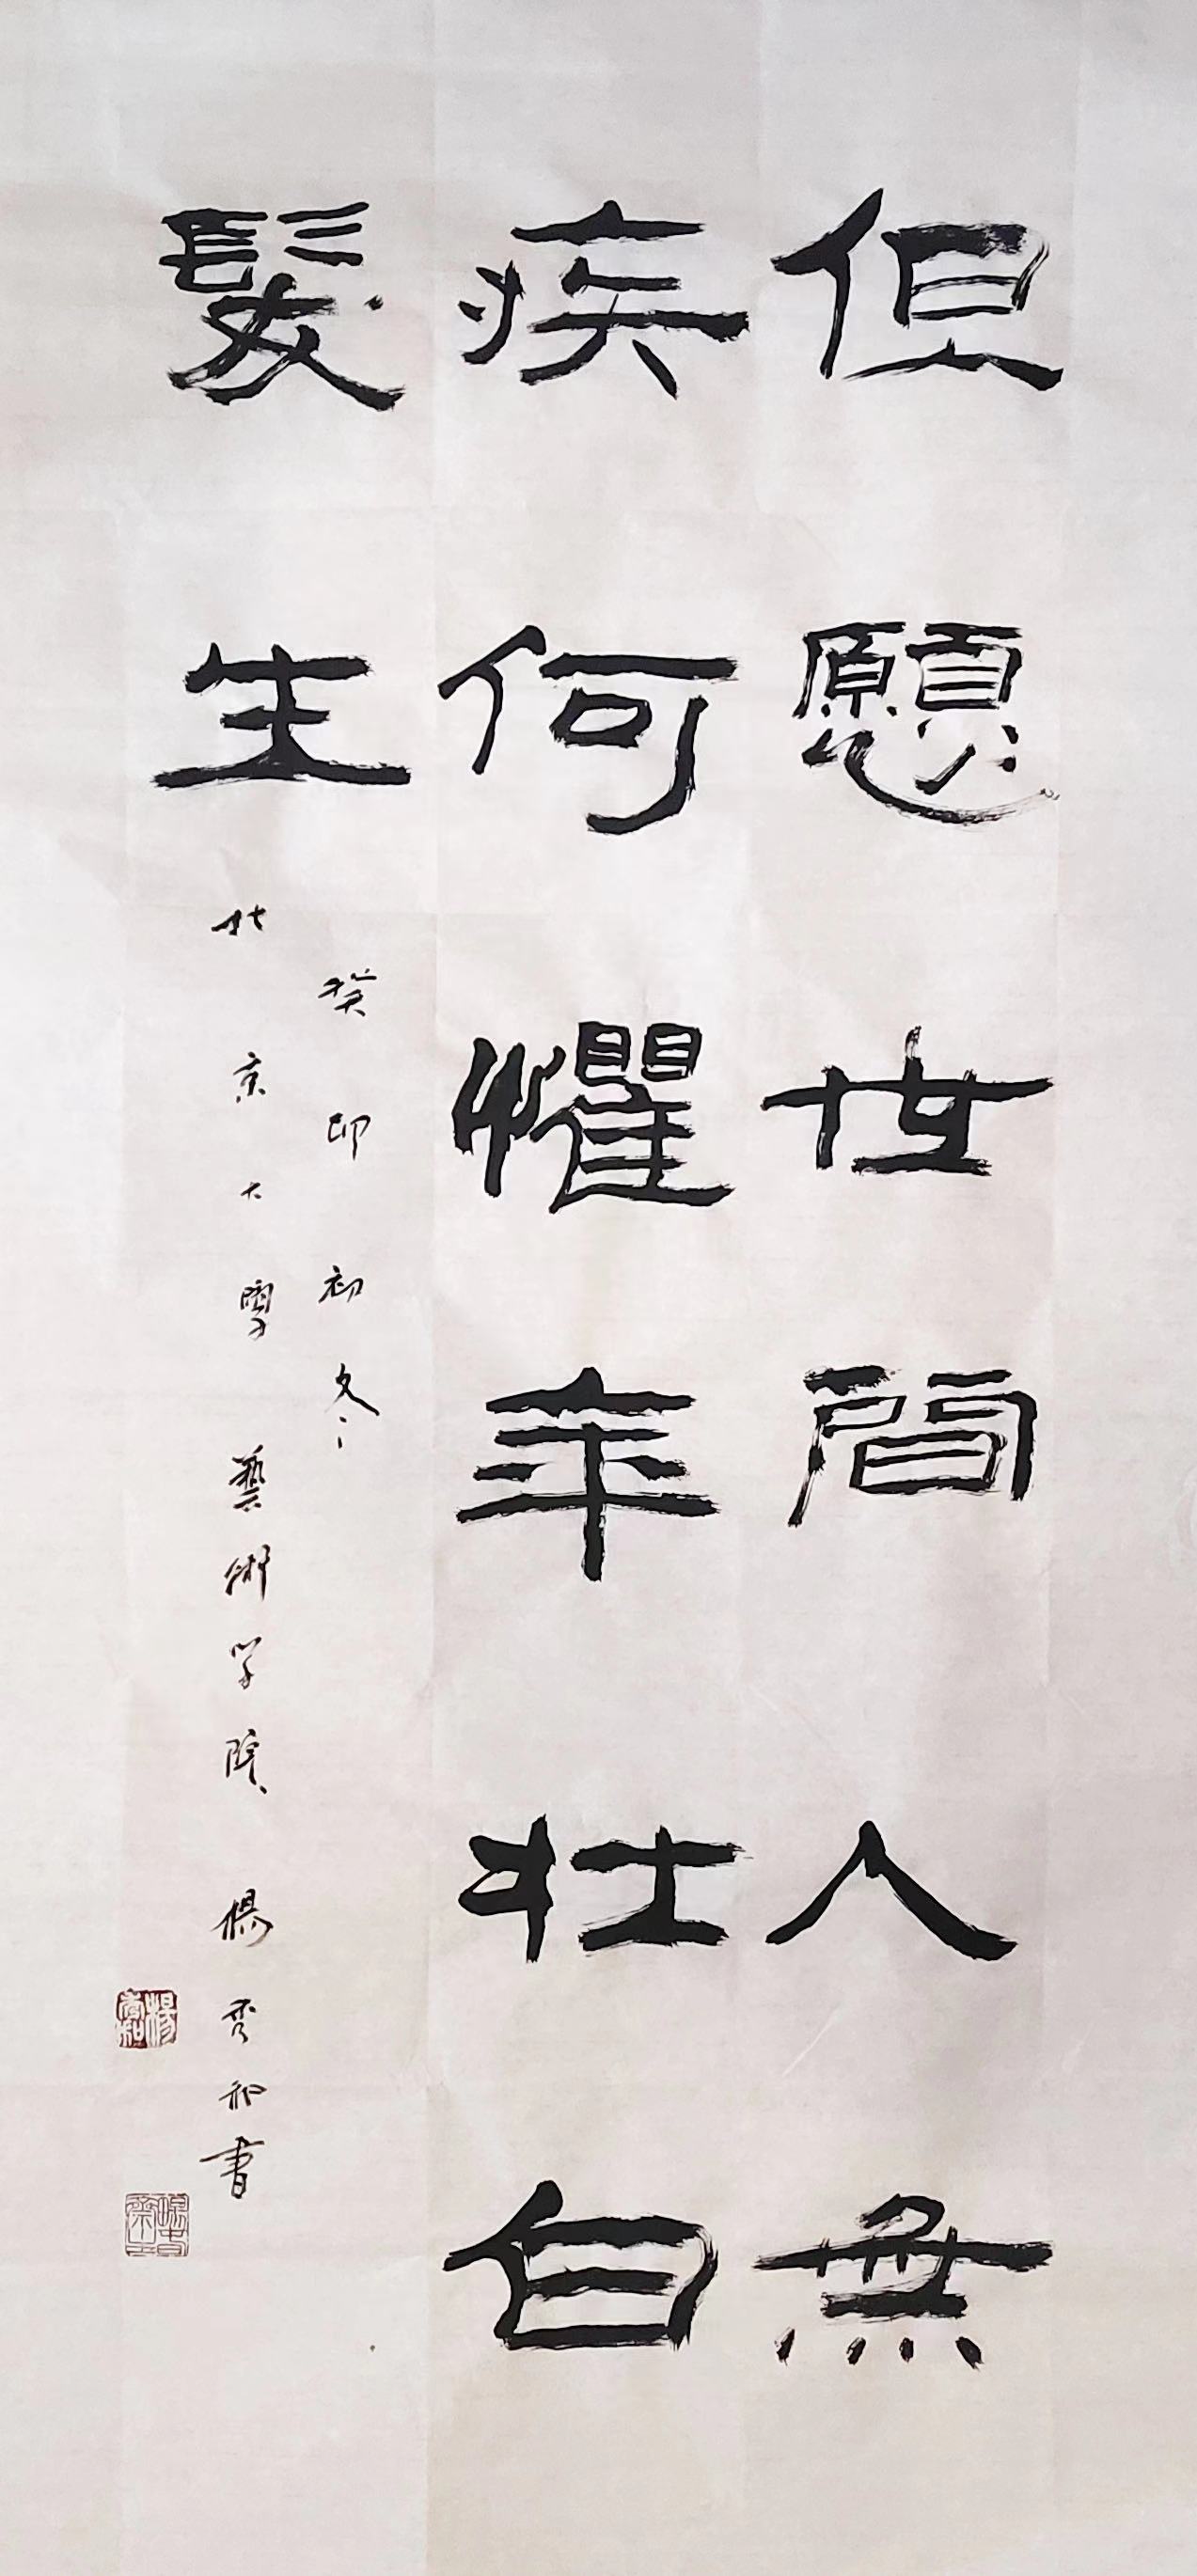 但願世間人無
疾何懼年壯白
髮生
癸卯初冬
北京大學藝術学院楊秀和書